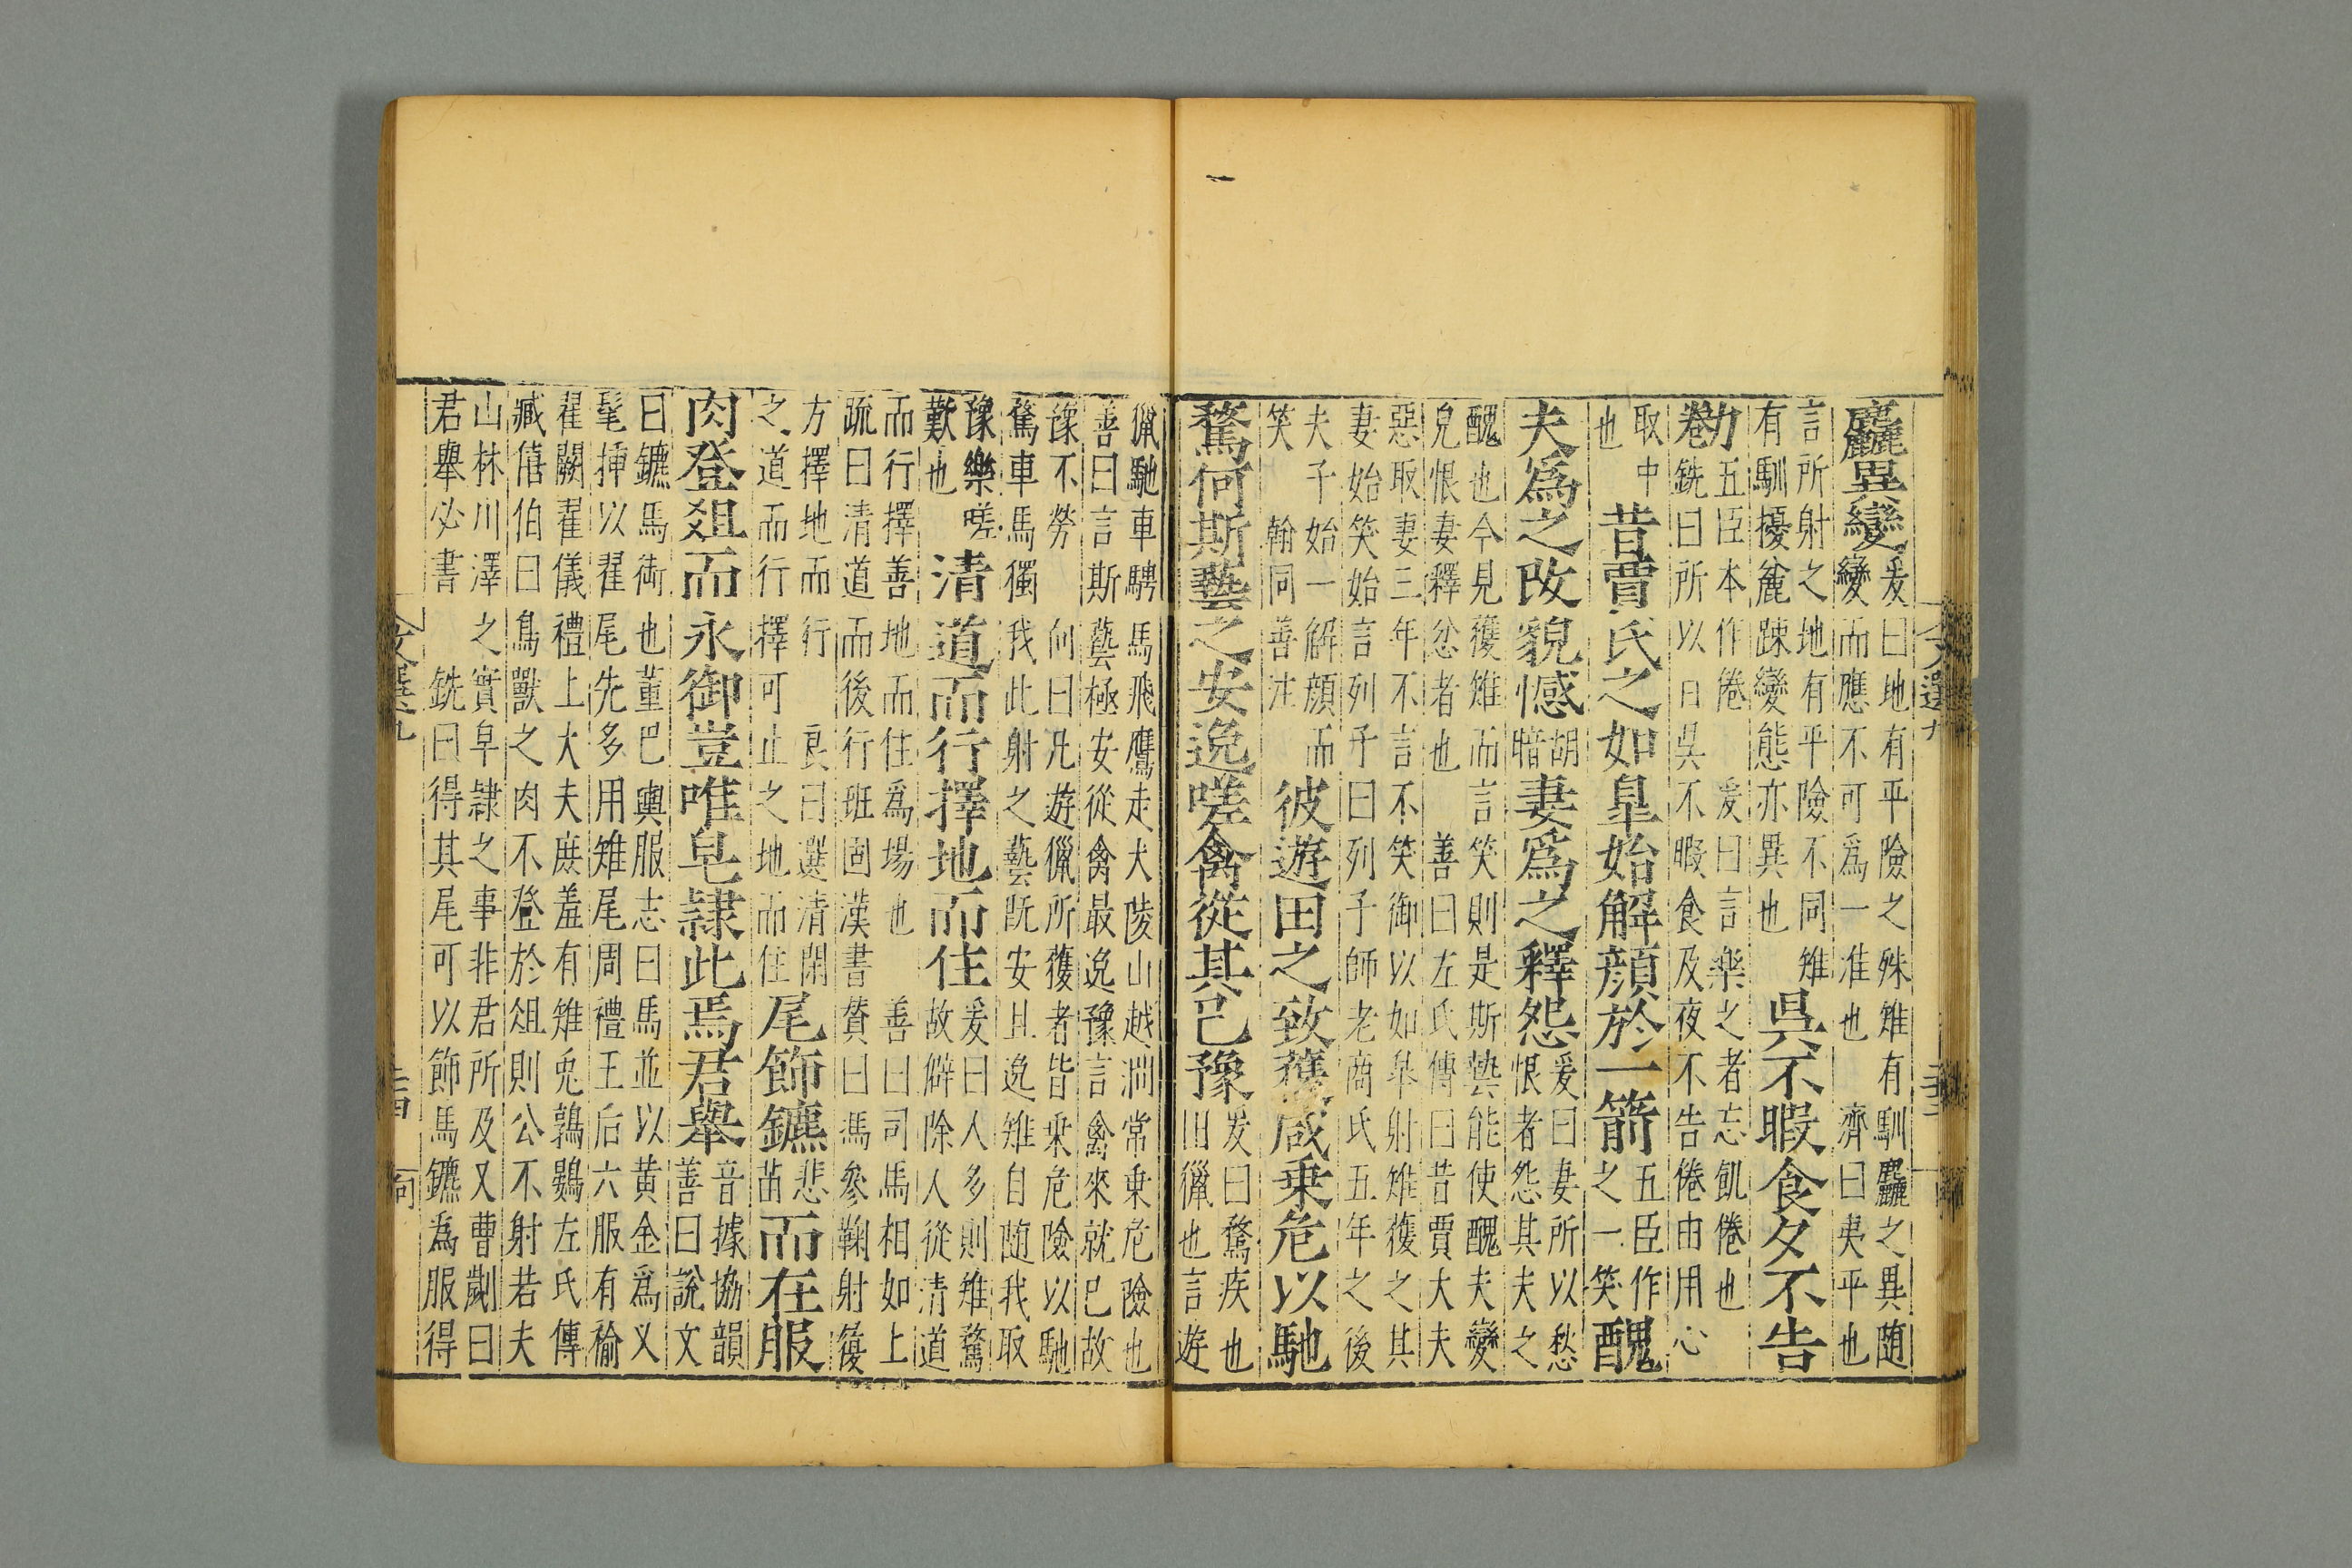 麤異變爰曰地有平險之殊雉有馴麤之異随
變而應不可爲一准也　濟曰夷平也
言所射之地有平險不同雉
有馴擾麄踈變態亦異也
昃不暇食夕不告
勌五臣本作倦　爰曰言樂之者忘飢倦也
銑曰所以日昃不暇食及夜不告倦由用心
取中
也
昔賈氏之如皐始解顔於一箭五臣作
之一笑
醜
夫爲之改貌憾胡
暗
妻爲之釋怨爰曰妻所以愁
恨者怨其夫之
醜也今見獲雉而言笑則是斯藝能使醜夫變
皃恨妻釋忿者也　善曰左氏傳曰昔賈大夫
惡取妻三年不言不笑御以如皐射雉獲之其
妻始笑始言列子曰列子師老商氏五年之後
夫子始一解顔而
笑　翰同善注
彼遊田之致獲咸乗危以馳
騖何斯藝之安逸嗟禽從其已豫爰曰騖疾也
旧獵也言遊
獵馳車騁馬飛鷹走犬陵山越澗常乗危險也
善曰言斯藝極安從禽最逸豫言禽來就已故
豫不勞　向曰凡遊獵所獲者皆乗危險以馳
騖車馬獨我此射之藝旣安且逸雉自随我取
豫樂嗟
歎也
清道而行擇地而住爰曰人多則雉騖
故僻除人從清道
而行擇善地而住爲場也　善曰司馬相如上
疏曰清道而後行班固漢書賛曰馮參鞠射履
方擇地而行　良曰選清閑
之道而行擇可止之地而住
尾飾鑣悲
苗
而在服
肉登爼而永御豈唯皂隷此焉君舉音據協韻
善曰說文
曰鑣馬銜也董巴輿服志曰馬並以黄金爲义
髦揷以翟尾先多用雉尾周禮王后六服有褕
翟闕翟儀禮上大夫庶羞有雉兎鶉鷃左氏傳
臧僖伯曰鳥獸之肉不登於俎則公不射若夫
山林川澤之實皁隷之事非君所及又曹劌曰
君舉必書　銑曰得其尾可以飾馬鑣為服得